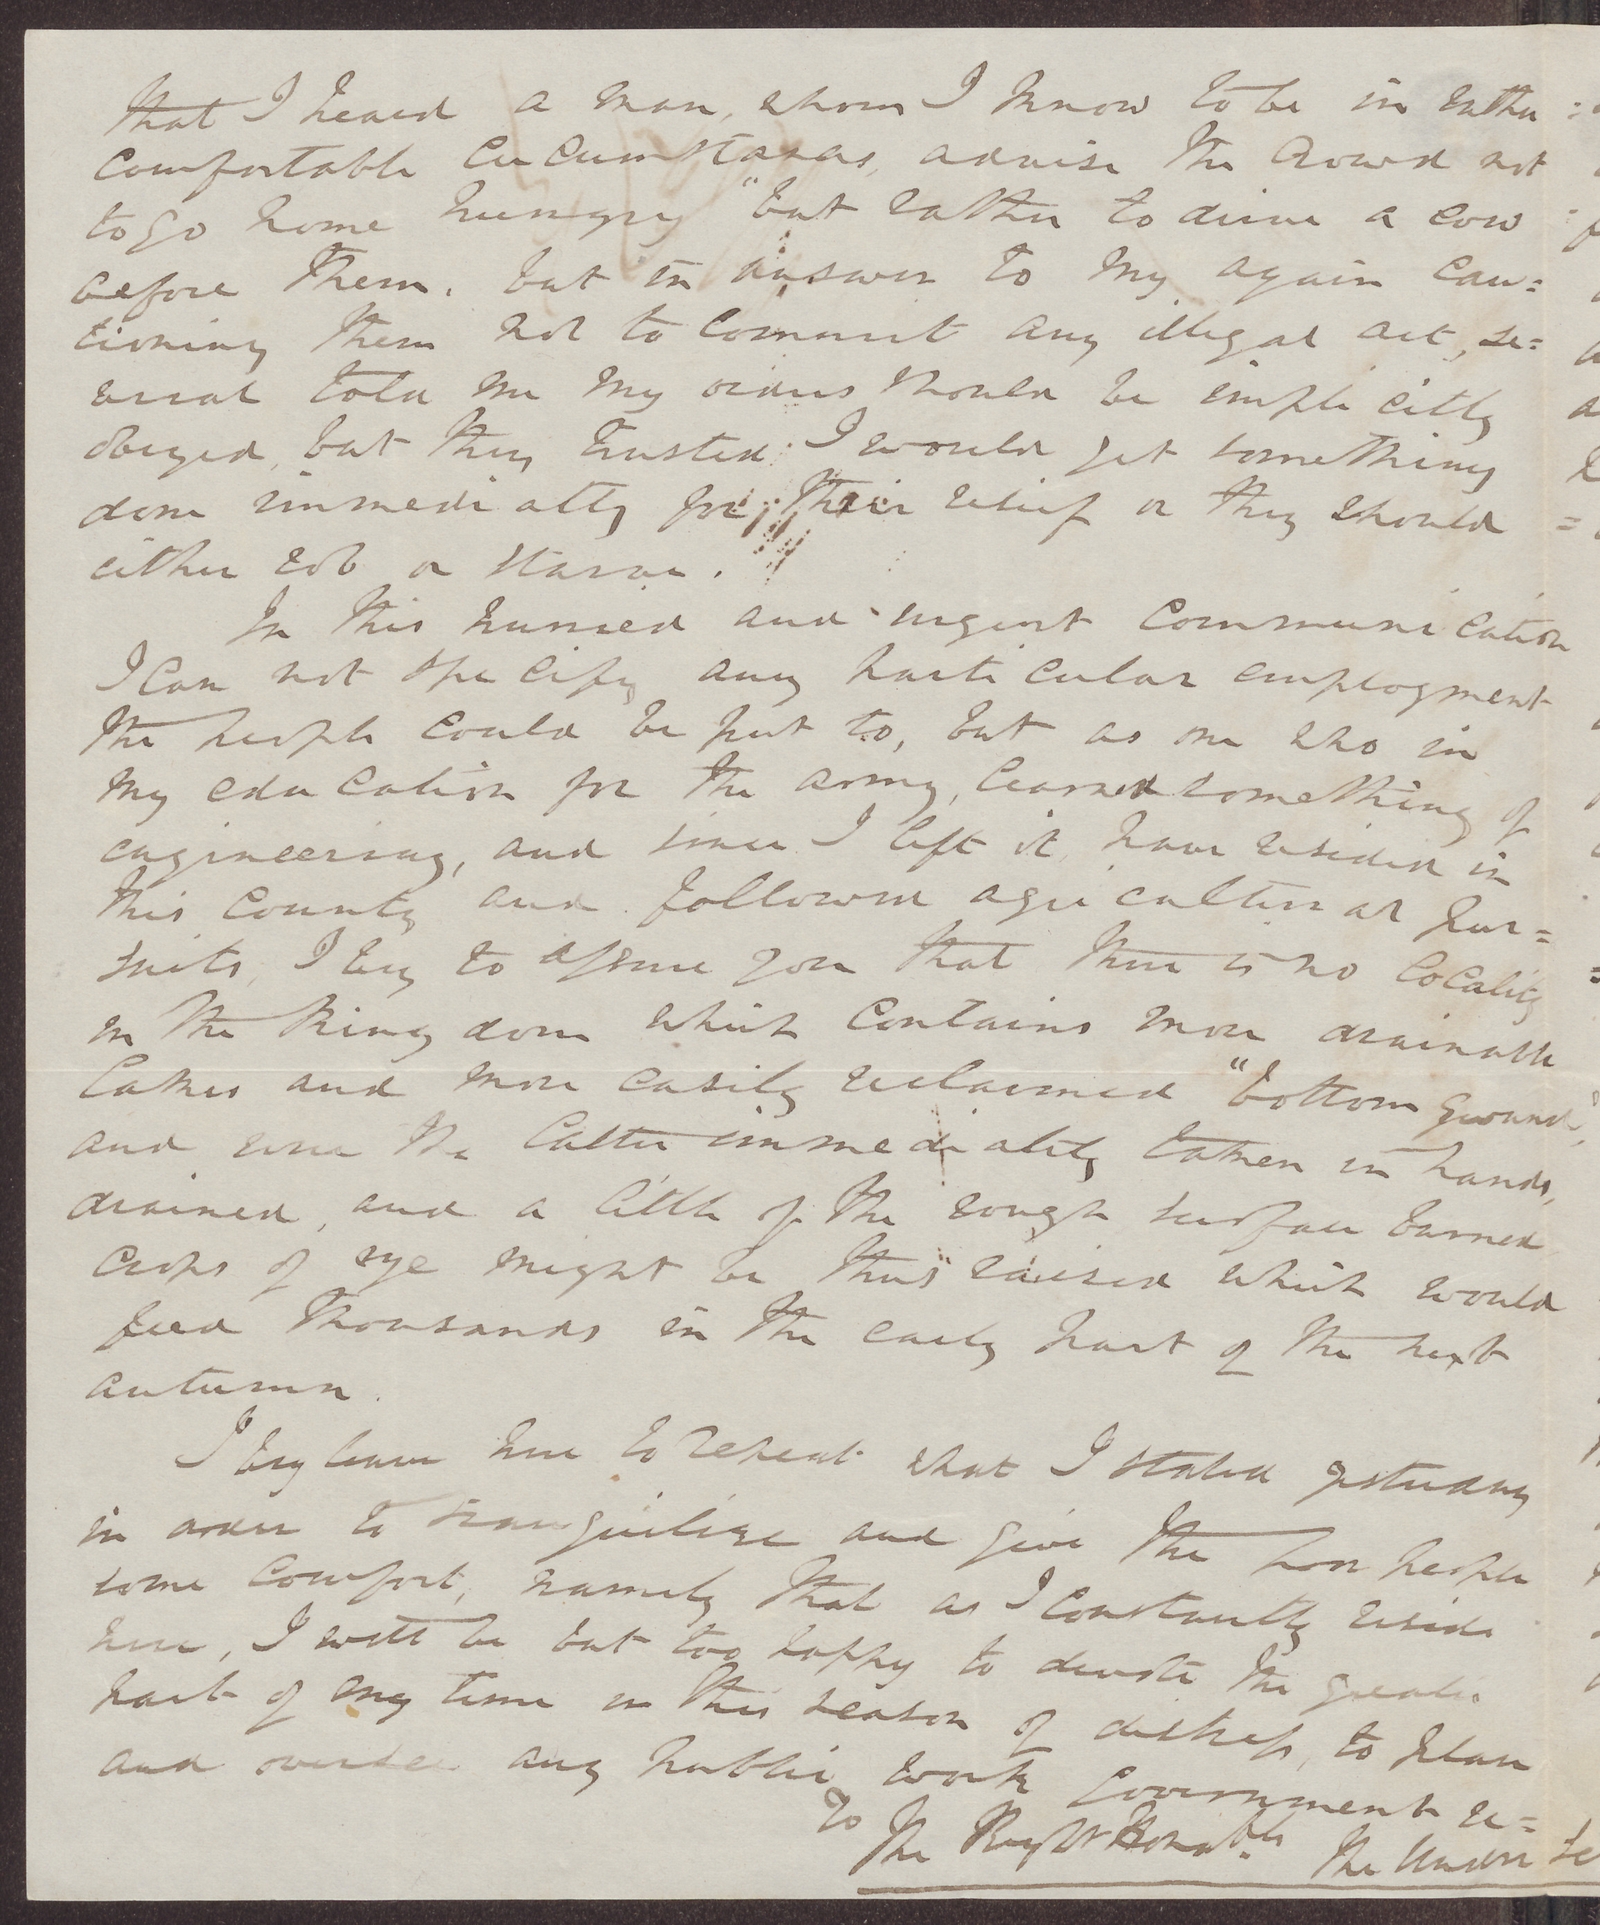 that I heard a man, whom I know to be in rather
comfortable circumstances, advise the crowd not
to go home hungry "but rather to drive a cow
before them. but in answer to my again cau=
tioning them not to commit any illegal act, se=
veral told me my orders should be implicitly
obeyed, but they trusted I would get something
done immediatly for their relief or they should
either rob or starve.
In this hurried and urgent communication
I can not specify any particular employment
the people could be put to, but as one who in
my education for the army, learned something of
engineering, and since I left it, have resided in
this County and followed agricultural pur=
suits, I beg to assure you that there is no locality
in the Kingdom which contains more drainable
Lakes and more easily reclaimed "bottom grounds,"
and were the latter immediatly taken in hands,
drained, and a little of the rough surface burned
crops of rye might be thus raised which would
feed thousands in the early part of the next
autumn.
I beg leave here to repeat what I stated yesterday
in order to tranquilize and give the poor people
some comfort, namely that as I constantly reside
here, I will be but too happy to devote the greater
part of my time in this season of distress, to plan
and oversee any public work Government re=
To
The Right Honable. The Under Se